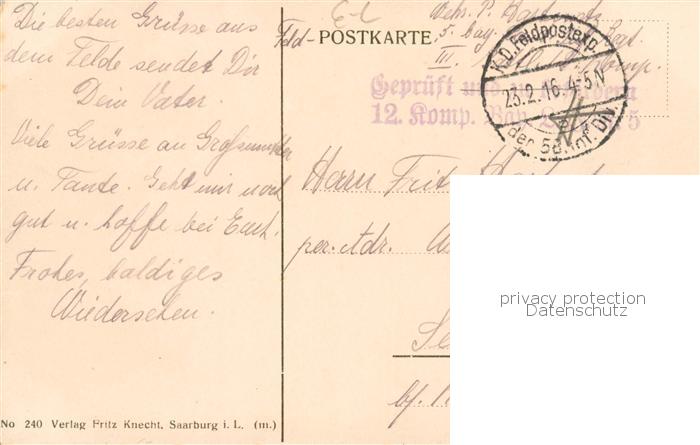 Die besten Grüsse aus
dem Felde sendet Dir
Dein Vater.
Viele Grüsse an Grossmutter
u. Tante. Geht mir noch
gut u. hoffe bei Euch.
Frohes, baldiges
Wiedersehen.
No 240 Verlag Fritz Knecht, Saarburg i. L. (m.)
Feld-POSTKARTE.
5. bay.
III.
Geprüft
12. Komp. Bay. 5
K.D. Feldpostexp.
23.2.16. 4-5 N
der 5b. Inf. Div.
Herrn Fritz
per. Adr.
privacy protection
Datenschutz